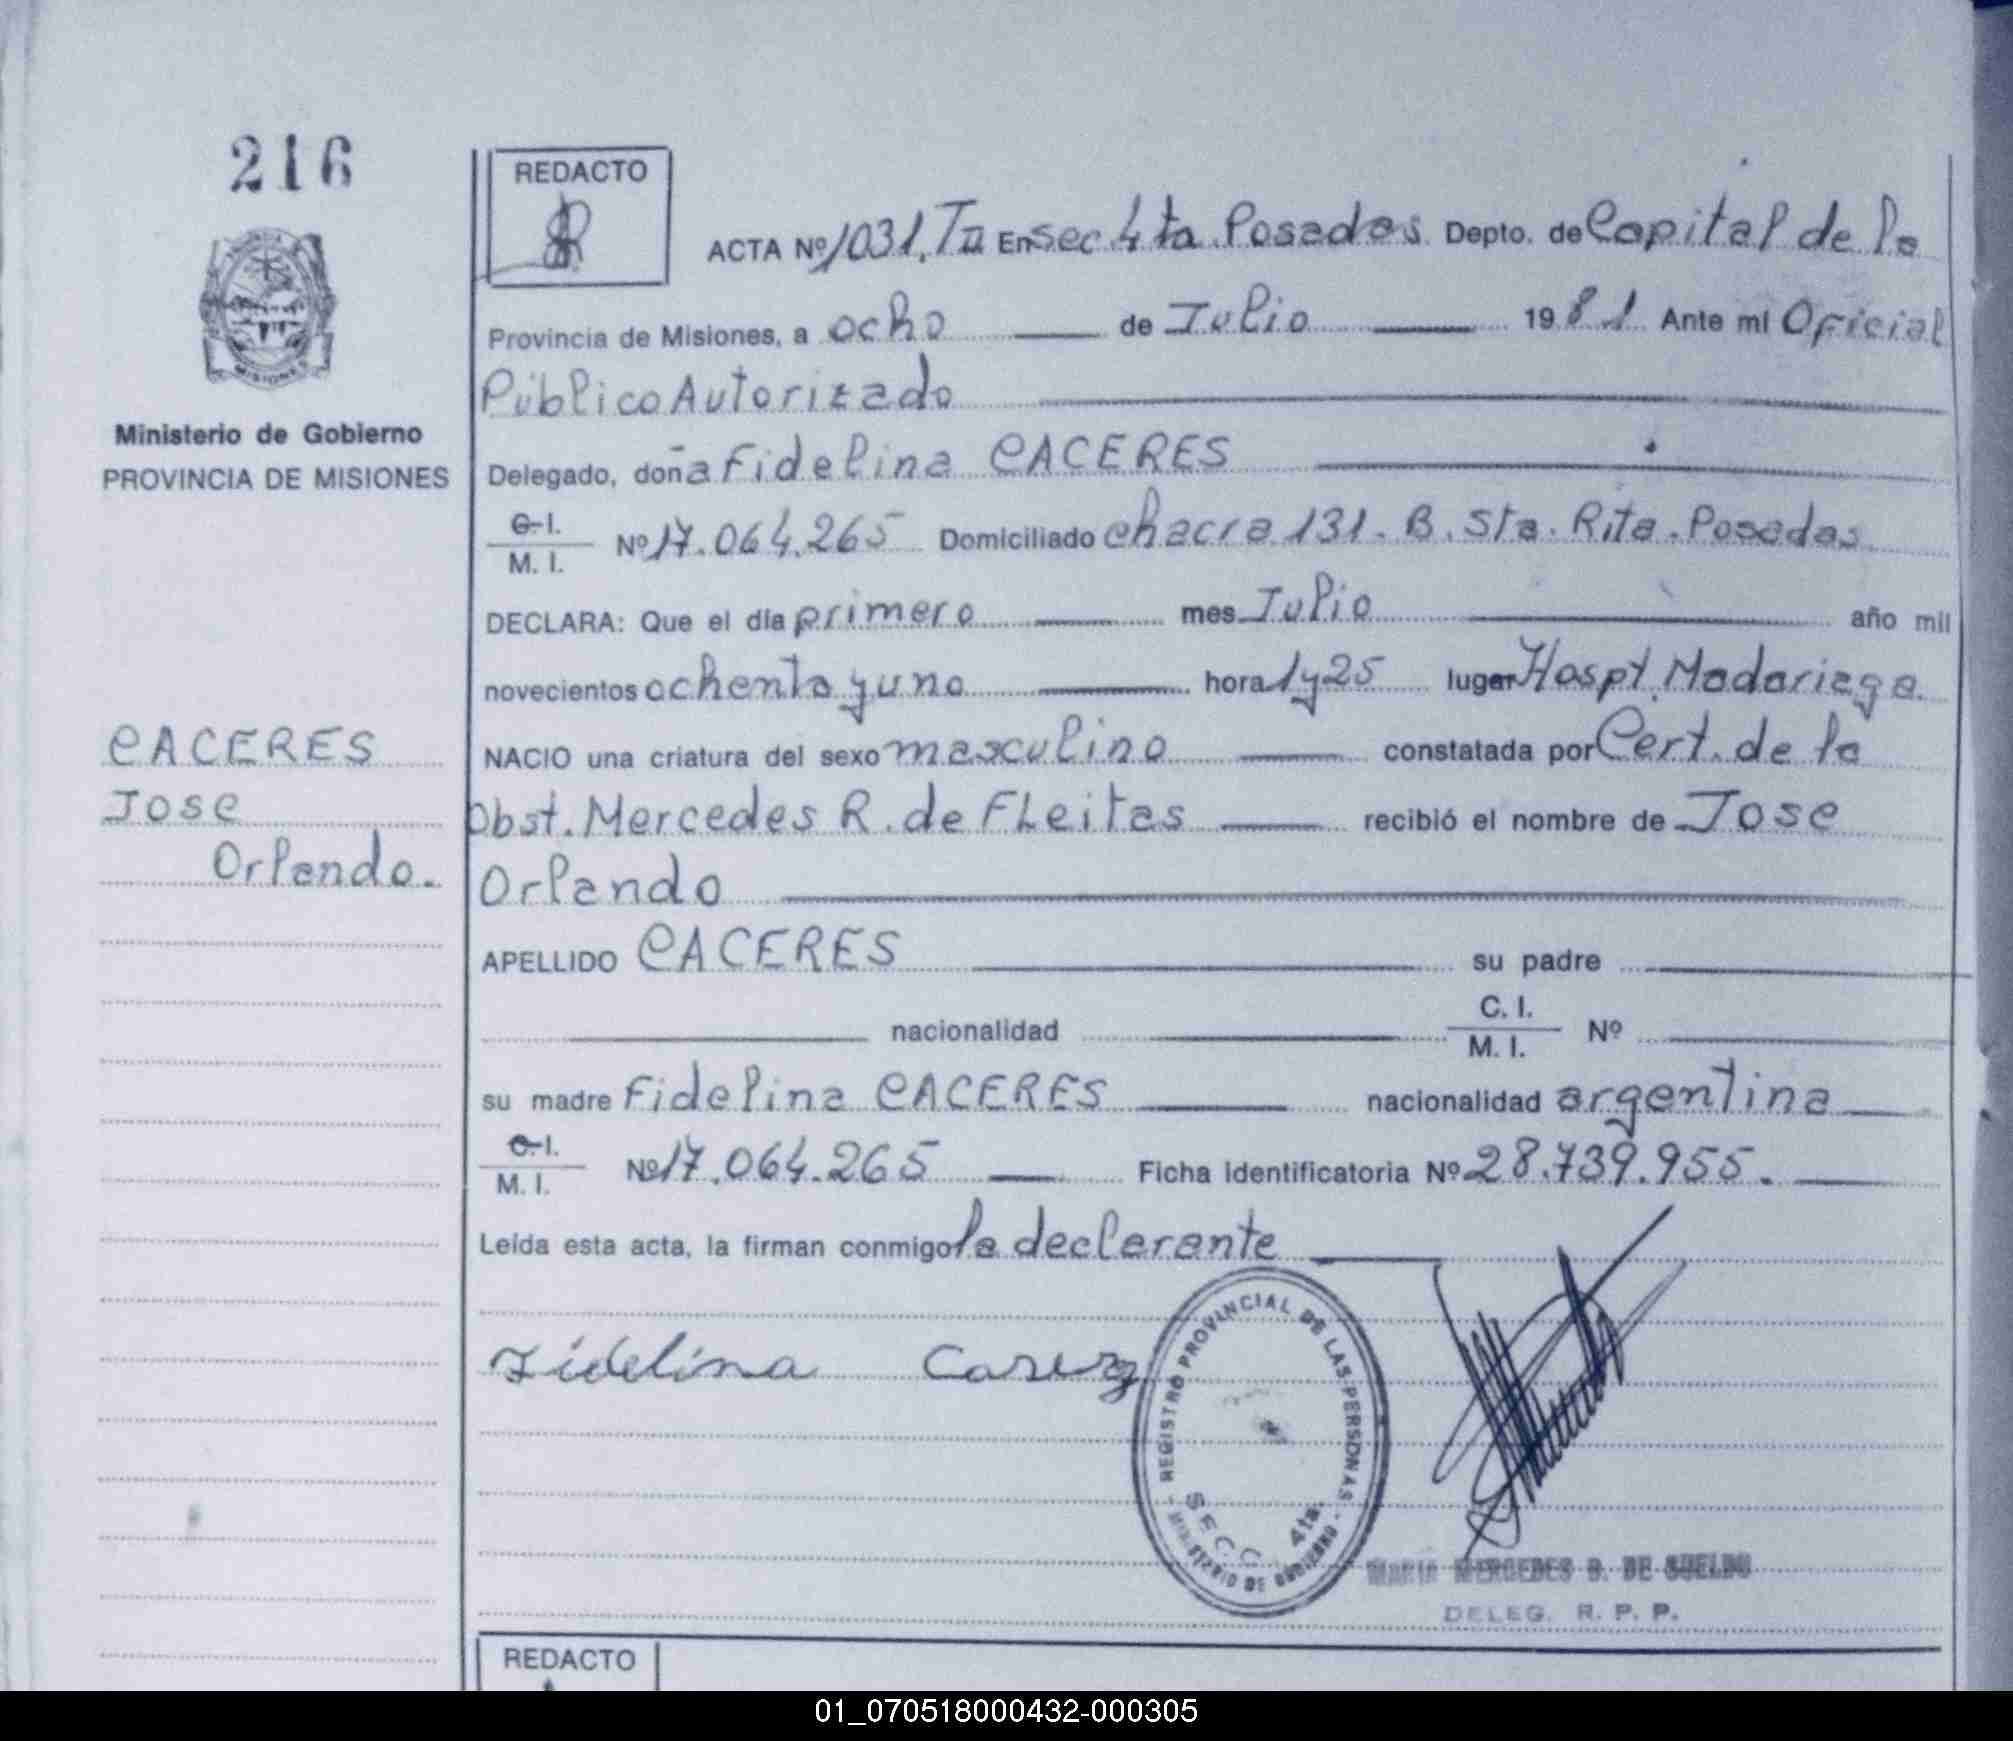 216
REDACTO
ACTA Nº 1031. T II En Sec 4ta Posadas Depto. de Capital de la
Provincia de Misiones, a ocho de Julio 1981 Ante mi Oficial
Público Autorizado
Ministerio de Gobierno
PROVINCIA DE MISIONES
Delegado, doña Fidelina CACERES
C.I.
M. I.
Nº 17.064.265 Domiciliado chacra 131. B. Sta. Rita. Posadas
DECLARA: Que el día primero mes Julio año mil
novecientos ochenta y uno hora 1 y 25 lugar Hospt. Madariaga
CACERES
Jose
Orlando.
NACIO una criatura del sexo masculino constatada por Cert. de la
Obst. Mercedes R. de FLeitas recibió el nombre de Jose
Orlando
APELLIDO CACERES su padre
nacionalidad C. I.
M. I. Nº
su madre Fidelina CACERES nacionalidad argentina
C.I.
M. I.
Nº 17.064.265 Ficha identificatoria Nº 28.739.955.
Leída esta acta, la firman conmigo la declarante
Fidelina
REGISTRO PROVINCIAL DE LAS PERSONAS
SECC 4ta.
MINISTERIO DE GOBIERNO
MARIA MERCEDES B. DE SUELDO
DELEG. R. P. P.
REDACTO
01_070518000432-000305